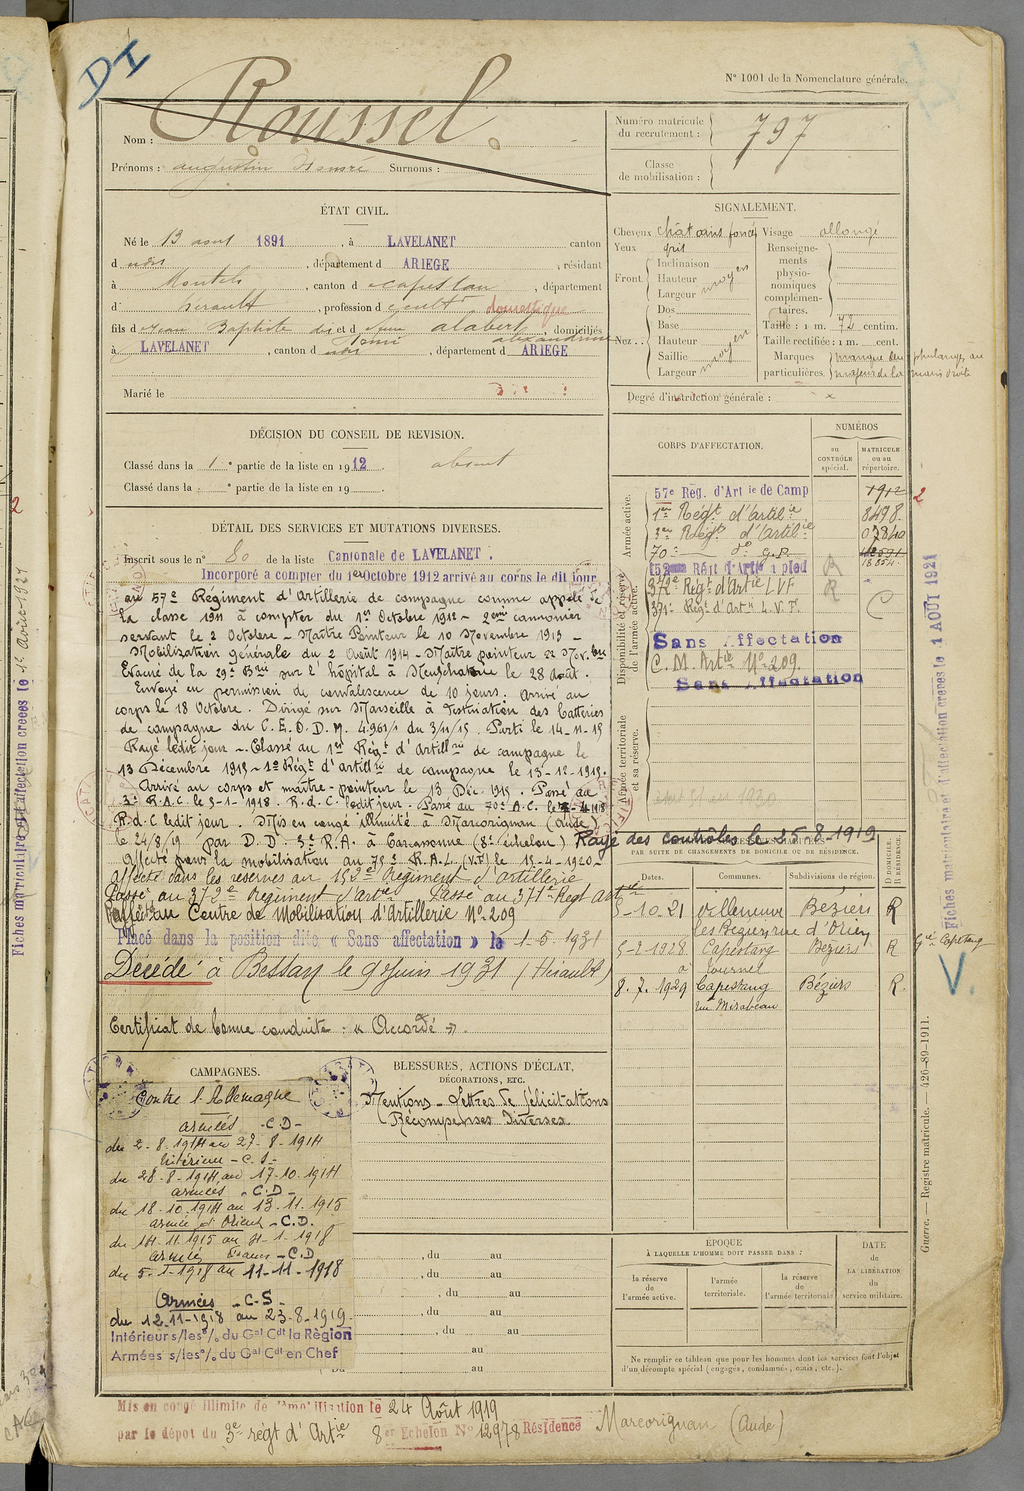 DI
N° 1001 de la Nomenclature générale.
Nom : Roussel.
Prénoms : augustin Surnoms :
Numéro matricule du recrutement : 797
Classe de mobilisation :
ÉTAT CIVIL.
Né le 13 aout 1891, à LAVELANET canton
d udit, département d ARIEGE, résidant
à Montels, canton d capestan, département
d' herault, profession d cultr domestique
fils d Jean Baptiste et d alabert alexandrine, domiciliés
à LAVELANET, canton d udit, département d ARIEGE
Marié le
SIGNALEMENT.
Cheveux châtains foncés Visage allongé
Yeux gris
Front Inclinaison
Hauteur moyen
Largeur
Nez Dos
Base
Hauteur moyen
Saillie
Largeur
Renseignements physionomiques complémentaires.
Taille : 1 m. 72 centim.
Taille rectifiée : 1 m. cent.
Marques particulières. manque deux phalanges au majeur de la main droite
Degré d'instruction générale : x
DÉCISION DU CONSEIL DE REVISION.
Classé dans la 1e partie de la liste en 1912. absent
Classé dans la e partie de la liste en 19
DÉTAIL DES SERVICES ET MUTATIONS DIVERSES.
Inscrit sous le n° 80 de la liste Cantonale de LAVELANET.
Incorporé a compter du 1er Octobre 1912 arrivé au corps le dit jour
au 57e Régiment d'Artillerie de campagne comme appelé de
la classe 1911 à compter du 1er Octobre 1912 - 2eme canonnier
servant le 2 Octobre - Maître Pointeur le 10 Novembre 1913 -
Mobilisation générale du 2 Août 1914 - Maître pointeur
Evacué de la 29e Brie sur l'hôpital à Neufchateau le 28 août.
Envoyé en permission de convalescence de 10 jours. Arrivé au
corps le 18 Octobre. Dirigé sur Marseille à destination des batteries
de campagne du C.E.D.D.M. 4.961/1 du 3/11/15. Parti le 14-11-15
Rayé ledit jour - Classé au 1er Régt d'Artillrie de campagne le
13 Décembre 1915 - 1e Régt d'artillrie de campagne le 13-12-1915.
Arrivé au corps et maître-pointeur le 13 Déc. 1915. Passé au
3e R.A.C. le 5-1-1918. R.d.C. ledit jour - Passé au 70e A.C. le
R.d.C ledit jour Mis en congé illimité à Marcorignan (Aude)
le 24/8/19 par D.D. 3e R.A à Carcassonne (8e échelon) Rayé des contrôles le 25-8-1919
Affecté pour la mobilisation au 75e R.A.L. (V.F) le 15-4-1920
affecté dans les reserves au 152e Régiment d'artillerie
Passé au 372e Régiment d'Artie Passé au 371e Regt Artie
Affecté au Centre de Mobilisation d'Artillerie N° 209
Placé dans la position dite « Sans affectation » le 1.5.1931
Décédé à Bessan le 9 juin 1931 (Hérault)
Certificat de bonne conduite : « Accordé ».
CORPS D'AFFECTATION.
NUMÉROS
au CONTRÔLE spécial.
MATRICULE ou au répertoire.
Armée active.
57e Rég. d'Art ie de Camp 1912
1er Régt d'artilie 8498.
3e Régt d'Artilie
70e do
Disponibilité et réserve de l'armée active.
152e Régt d'Artie à pied
372e Regt d'Artie LVF
371e Regt d'Artie L.V.F.
Sans Affectation
C.M. Artie N° 209.
Sans Affectation
Armée territoriale et sa réserve.
PAR SUITE DE CHANGEMENTS DE DOMICILE OU DE RÉSIDENCE.
Dates. Communes. Subdivisions de région. D DOMICILE. R RÉSIDENCE.
5-10.21 Villeneuve les Beziers rue d'Orien Beziers R
5-2-1928 Capestang Béziers R
8.7.1929 Capestang rue Mirabeau Béziers R.
Gde Capestang
V.
Fiches matriculaire et d'affectation créées le 1 AOUT 1921
Guerre. — Registre matricule. — 426-89-1911.
CAMPAGNES.
Contre l'Allemagne
armées - C.D -
du 2-8-1914 au 27-8-1914
Intérieur - C.S -
du 28-8-1914 au 17-10-1914
armées - C.D -
du 18-10-1914 au 13.11.1915
armée d'Orient - C.D.
du 14-11-1915 au 1-1918
armées - C.D
du 5-1-1918 au 11-11-1918
Armées - C.S -
du 12.11-1918 au 23.8.1919.
Intérieur s/les o/o du Gal Cdt la Région
Armées s/les o/o du Gal Cdt en Chef
BLESSURES, ACTIONS D'ÉCLAT,
DÉCORATIONS, ETC.
Mentions - Lettres de félicitations
Récompenses diverses
, du au
, du au
, du au
, du au
, du au
au
Du au
ÉPOQUE
À LAQUELLE L'HOMME DOIT PASSER DANS :
la réserve de l'armée active.
l'armée territoriale.
la réserve de l'armée territoriale
DATE de LA LIBÉRATION du service militaire.
Ne remplir ce tableau que pour les hommes dont les services font l'objet d'un décompte spécial (engagés, condamnés, omis, etc.).
Mis en congé Illimité de Démobilisation le 24 Août 1919
par le dépot du 3e régt d'Artie 8er Echelon N° 12978 Résidence Marcorignan (Aude)